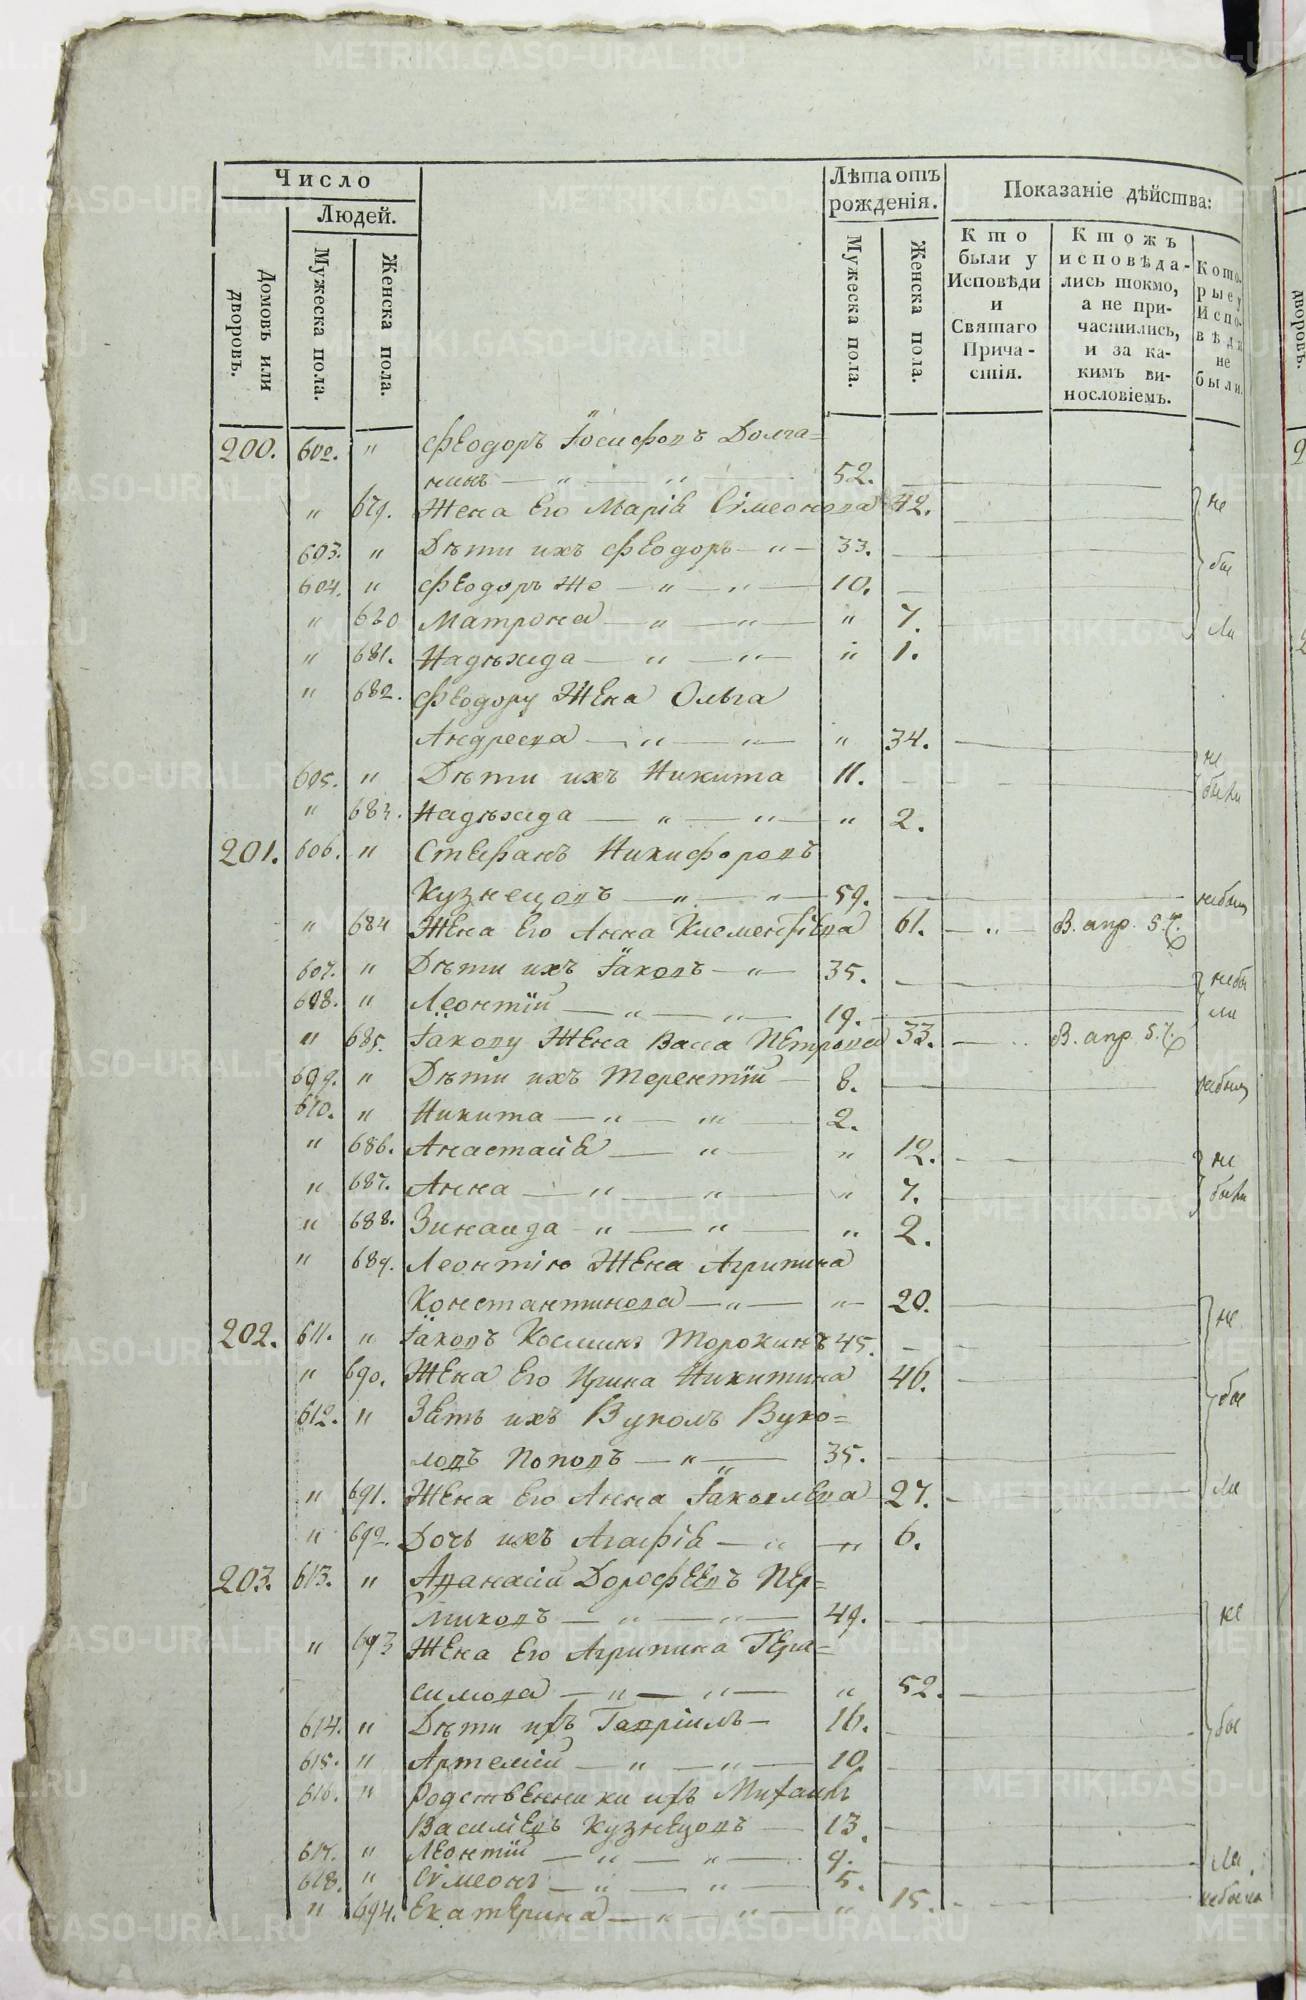 Число
Людей.
Домовъ или дворовъ.
Мужеска пола.
Женска пола.
Лѣта отъ рожденія.
Мужеска пола.
Женска пола.
Показаніе дѣйства:
Кто были у Исповѣди и Святаго Причастія.
Ктожъ исповѣдались токмо, а не причастились, и за какимъ винословіемъ.
Которые у Исповѣди не были.
200. 602. " Феодоръ Іосифовъ Долга=
нинъ — " — " 52.
" 679. Жена Его Марія Сімеонова 42. не
603. " Дѣти ихъ Феодоръ — " — 33.
604. " Феодоръ же — " — " — 10. бы
" 680 Матрона — " — " — " 7.
" 681. Надѣжда — " — " — " 1. ли
" 682. Феодору Жена Ольга
Андреева — " — " — " 34.
605. " Дѣти ихъ Никита 11. не были
" 683. Надѣжда — " — " — " 2.
201. 606. " Стефанъ Никифоровъ
Кузнецовъ — " — " — 59. небылъ
" 684 Жена Его Анна Климентіева 61. — " — В. апр. 5.
607. " Дѣти ихъ Іаковъ — " — 35. небы
608. " Леонтій — " — " — 19. ли
" 685. Іакову Жена Васса Петрова 33. В. апр. 5.
609. " Дѣти ихъ Терентій — 8. небылъ
610. " Никита — " — " — 2.
" 686. Анастасія — " — " 12. не
" 687. Анна — " — " — " 7. были
" 688. Зинаида — " — " — " 2.
" 689. Леонтію Жена Агрипина
Константинова — " — " — 20.
202. 611. " Іаковъ Косминъ Торокинъ 45. не
" 690. Жена Его Ирина Никитина 46.
612. " Зять ихъ Вуколъ Вуко= бы
ловъ Поповъ — " — 35.
" 691. Жена Его Анна Іаковлева 27. ли
" 692. Дочь ихъ Агафія — " — " 6.
203. 613. " Аѳанасій Дорофеевъ Пер=
миковъ — " — " — 49. не
" 693 Жена Его Агрипина Гера=
симова — " — " — " 52.
614. " Дѣти ихъ Гавріилъ — 16. бы
615. " Артемій — " — " — 10
616. " Родственники ихъ Михаилъ
Василіевъ Кузнецовъ — 13.
617. " Леонтій — " — " — 9. ли.
618. " Сімеонъ — " — " — 5.
" 694. Екатерина — " — " — " 15. небыла
METRIKI.GASO-URAL.RU